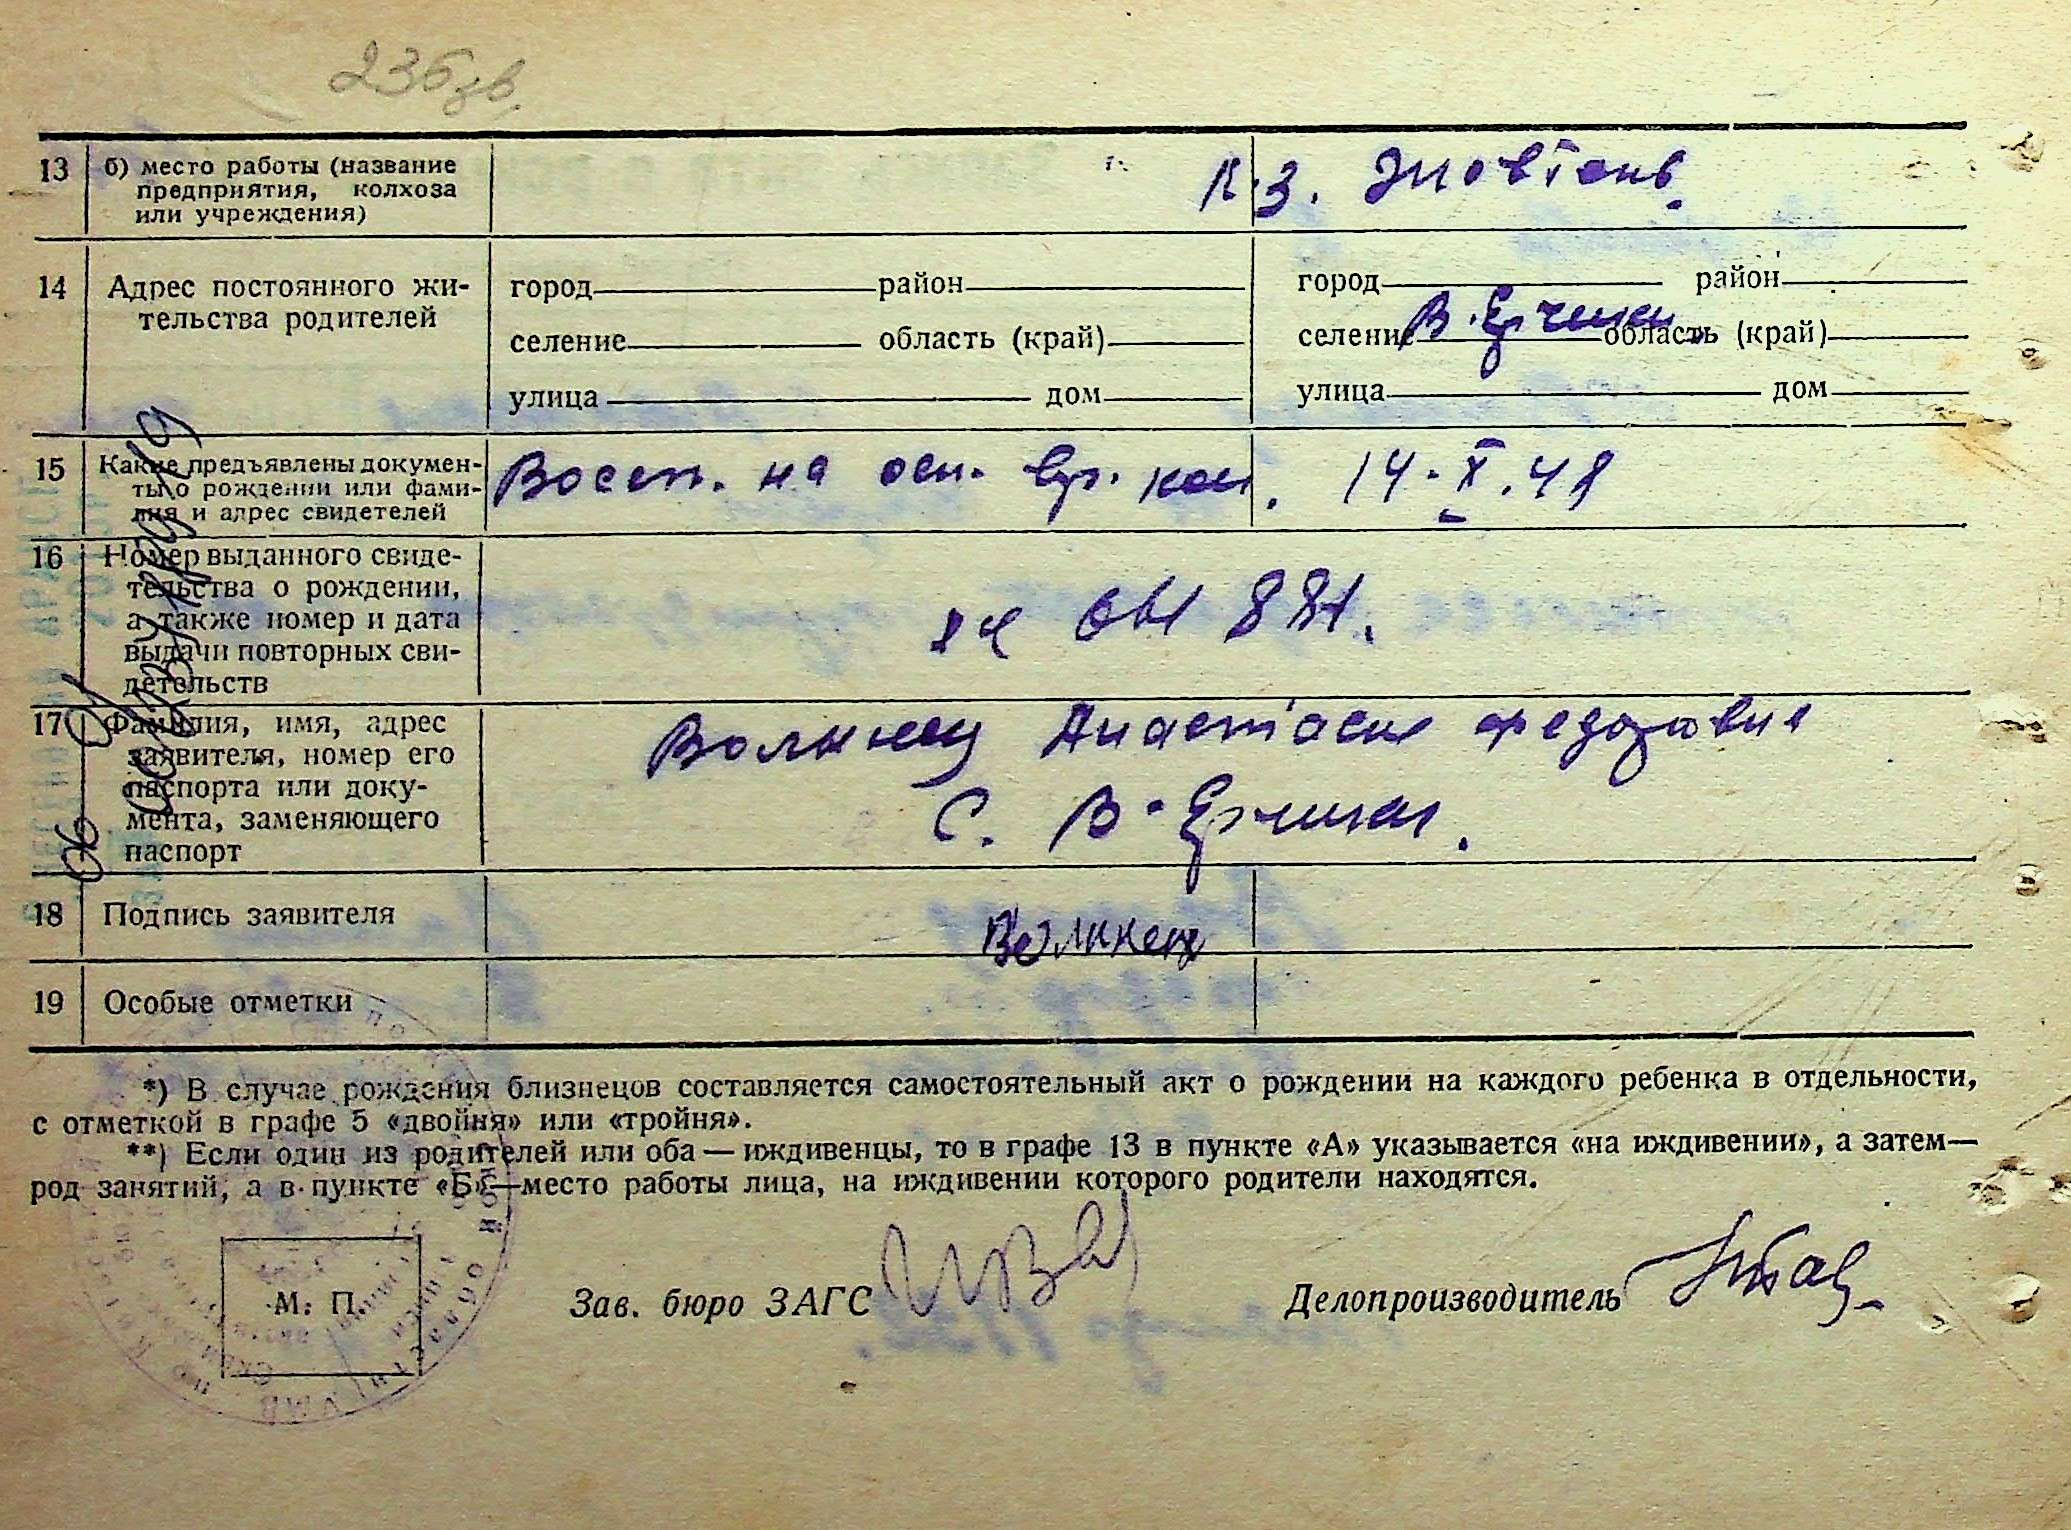 236зв.
13 б) место работы (название
предприятия, колхоза
или учреждения)
К-з. Жовтень.
14 Адрес постоянного жи-
тельства родителей
город район город район
селение область (край) селение В. Ерчики область (край)
улица дом улица дом
15 Какие предъявлены докумен-
ты о рождении или фами-
лия и адрес свидетелей
Восст. на осн. вр. ком. 14.X.48
16 Номер выданного свиде-
тельства о рождении,
а также номер и дата
выдачи повторных сви-
детельств
17 Фамилия, имя, адрес
заявителя, номер его
паспорта или доку-
мента, заменяющего
паспорт
Волинец Анастасия Федоровна
с. В-Ерчики.
18 Подпись заявителя
Волинец
19 Особые отметки
*) В случае рождения близнецов составляется самостоятельный акт о рождении на каждого ребенка в отдельности,
с отметкой в графе 5 «двойня» или «тройня».
**) Если один из родителей или оба — иждивенцы, то в графе 13 в пункте «А» указывается «на иждивении», а затем—
род занятий, а в пункте «Б»—место работы лица, на иждивении которого родители находятся.
М. П.
Зав. бюро ЗАГС
Делопроизводитель